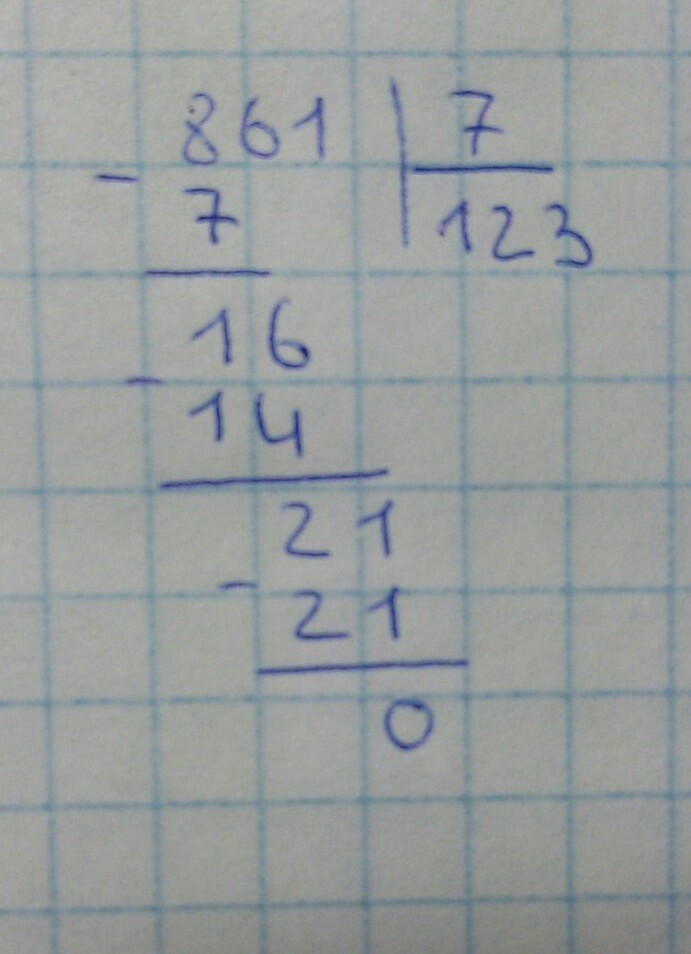 861 | 7
- 7 123
16
- 14
21
- 21
0